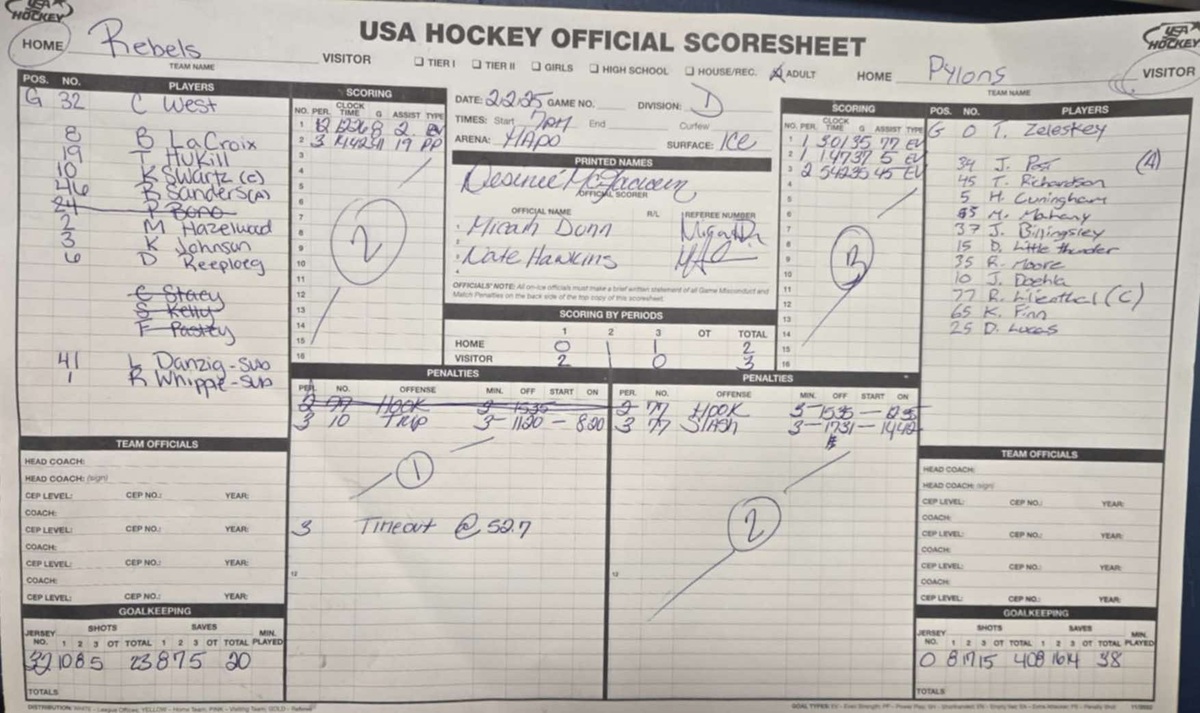 USA HOCKEY
USA HOCKEY OFFICIAL SCORESHEET
USA HOCKEY
HOME Rebels VISITOR
TEAM NAME
☐ TIER I ☐ TIER II ☐ GIRLS ☐ HIGH SCHOOL ☐ HOUSE/REC. ☒ ADULT
HOME Pylons VISITOR
TEAM NAME
POS. NO. PLAYERS
G 32 C West
8 B LaCroix
19 T Hukill
10 K Swartz (c)
46 R Sanders (A)
24 P Bono
2 M Hazelwood
3 K Johnson
6 D Reeploeg
C Stacy
S Kelly
F Pastey
41 L Danzig-sub
1 R Whippe-sub
SCORING
NO. PER. CLOCK TIME G ASSIST TYPE
1 2 1226 8 2 EV
2 3 1442 19 PP
3
4
5
6
7
8
9
10
11
12
13
14
15
16
2
DATE: 2.2.25 GAME NO. DIVISION: D
TIMES: Start 7PM End Curfew
ARENA: HAPO SURFACE: ICE
PRINTED NAMES
OFFICIAL SCORER
OFFICIAL NAME R/L REFEREE NUMBER
1 Micah Dunn
2
3 Nate Hawkins
4
OFFICIALS' NOTE: All on-ice officials must make a brief written statement of all Game Misconduct and
Match Penalties on the back side of the top copy of this scoresheet.
SCORING BY PERIODS
1 2 3 OT TOTAL
HOME 0 1 1 2
VISITOR 2 1 0 3
SCORING
NO. PER. CLOCK TIME G ASSIST TYPE
1 1 501 35 77 EV
2 1 147 37 5 EV
3 2 542 35 45 EV
4
5
6
7
8
9
10
11
12
13
14
15
16
3
POS. NO. PLAYERS
G 0 T. Zeleskey
34 J. Post (A)
45 T. Richardson
5 H. Cuningham
M. Mahany
37 J. Billingsley
15 D. Little thunder
35 R. Moore
10 J. Doehla
77 R. Lilienthal (C)
65 K. Finn
25 D. Lucas
PENALTIES
PER. NO. OFFENSE MIN. OFF START ON
2 77 HOOK 3 1535
3 10 TRIP 3 - 1120 - 820
1
3 Timeout @ 52.7
12
PENALTIES
PER. NO. OFFENSE MIN. OFF START ON
2 77 HOOK 3 - 1535 - 1235
3 77 SLASH 3 - 1731 - 1442
2
12
TEAM OFFICIALS
HEAD COACH:
HEAD COACH: (sign)
CEP LEVEL: CEP NO.: YEAR:
COACH:
CEP LEVEL: CEP NO.: YEAR:
COACH:
CEP LEVEL: CEP NO.: YEAR:
COACH:
CEP LEVEL: CEP NO.: YEAR:
GOALKEEPING
JERSEY NO. SHOTS 1 2 3 OT TOTAL SAVES 1 2 3 OT TOTAL MIN. PLAYED
32 10 8 5 23 8 7 5 20
TOTALS
TEAM OFFICIALS
HEAD COACH:
HEAD COACH: (sign)
CEP LEVEL: CEP NO.: YEAR:
COACH:
CEP LEVEL: CEP NO.: YEAR:
COACH:
CEP LEVEL: CEP NO.: YEAR:
COACH:
CEP LEVEL: CEP NO.: YEAR:
GOALKEEPING
JERSEY NO. SHOTS 1 2 3 OT TOTAL SAVES 1 2 3 OT TOTAL MIN. PLAYED
0 8 17 15 40 8 16 14 38
TOTALS
DISTRIBUTION: WHITE - League Offices; YELLOW - Home Team; PINK - Visiting Team; GOLD - Referee